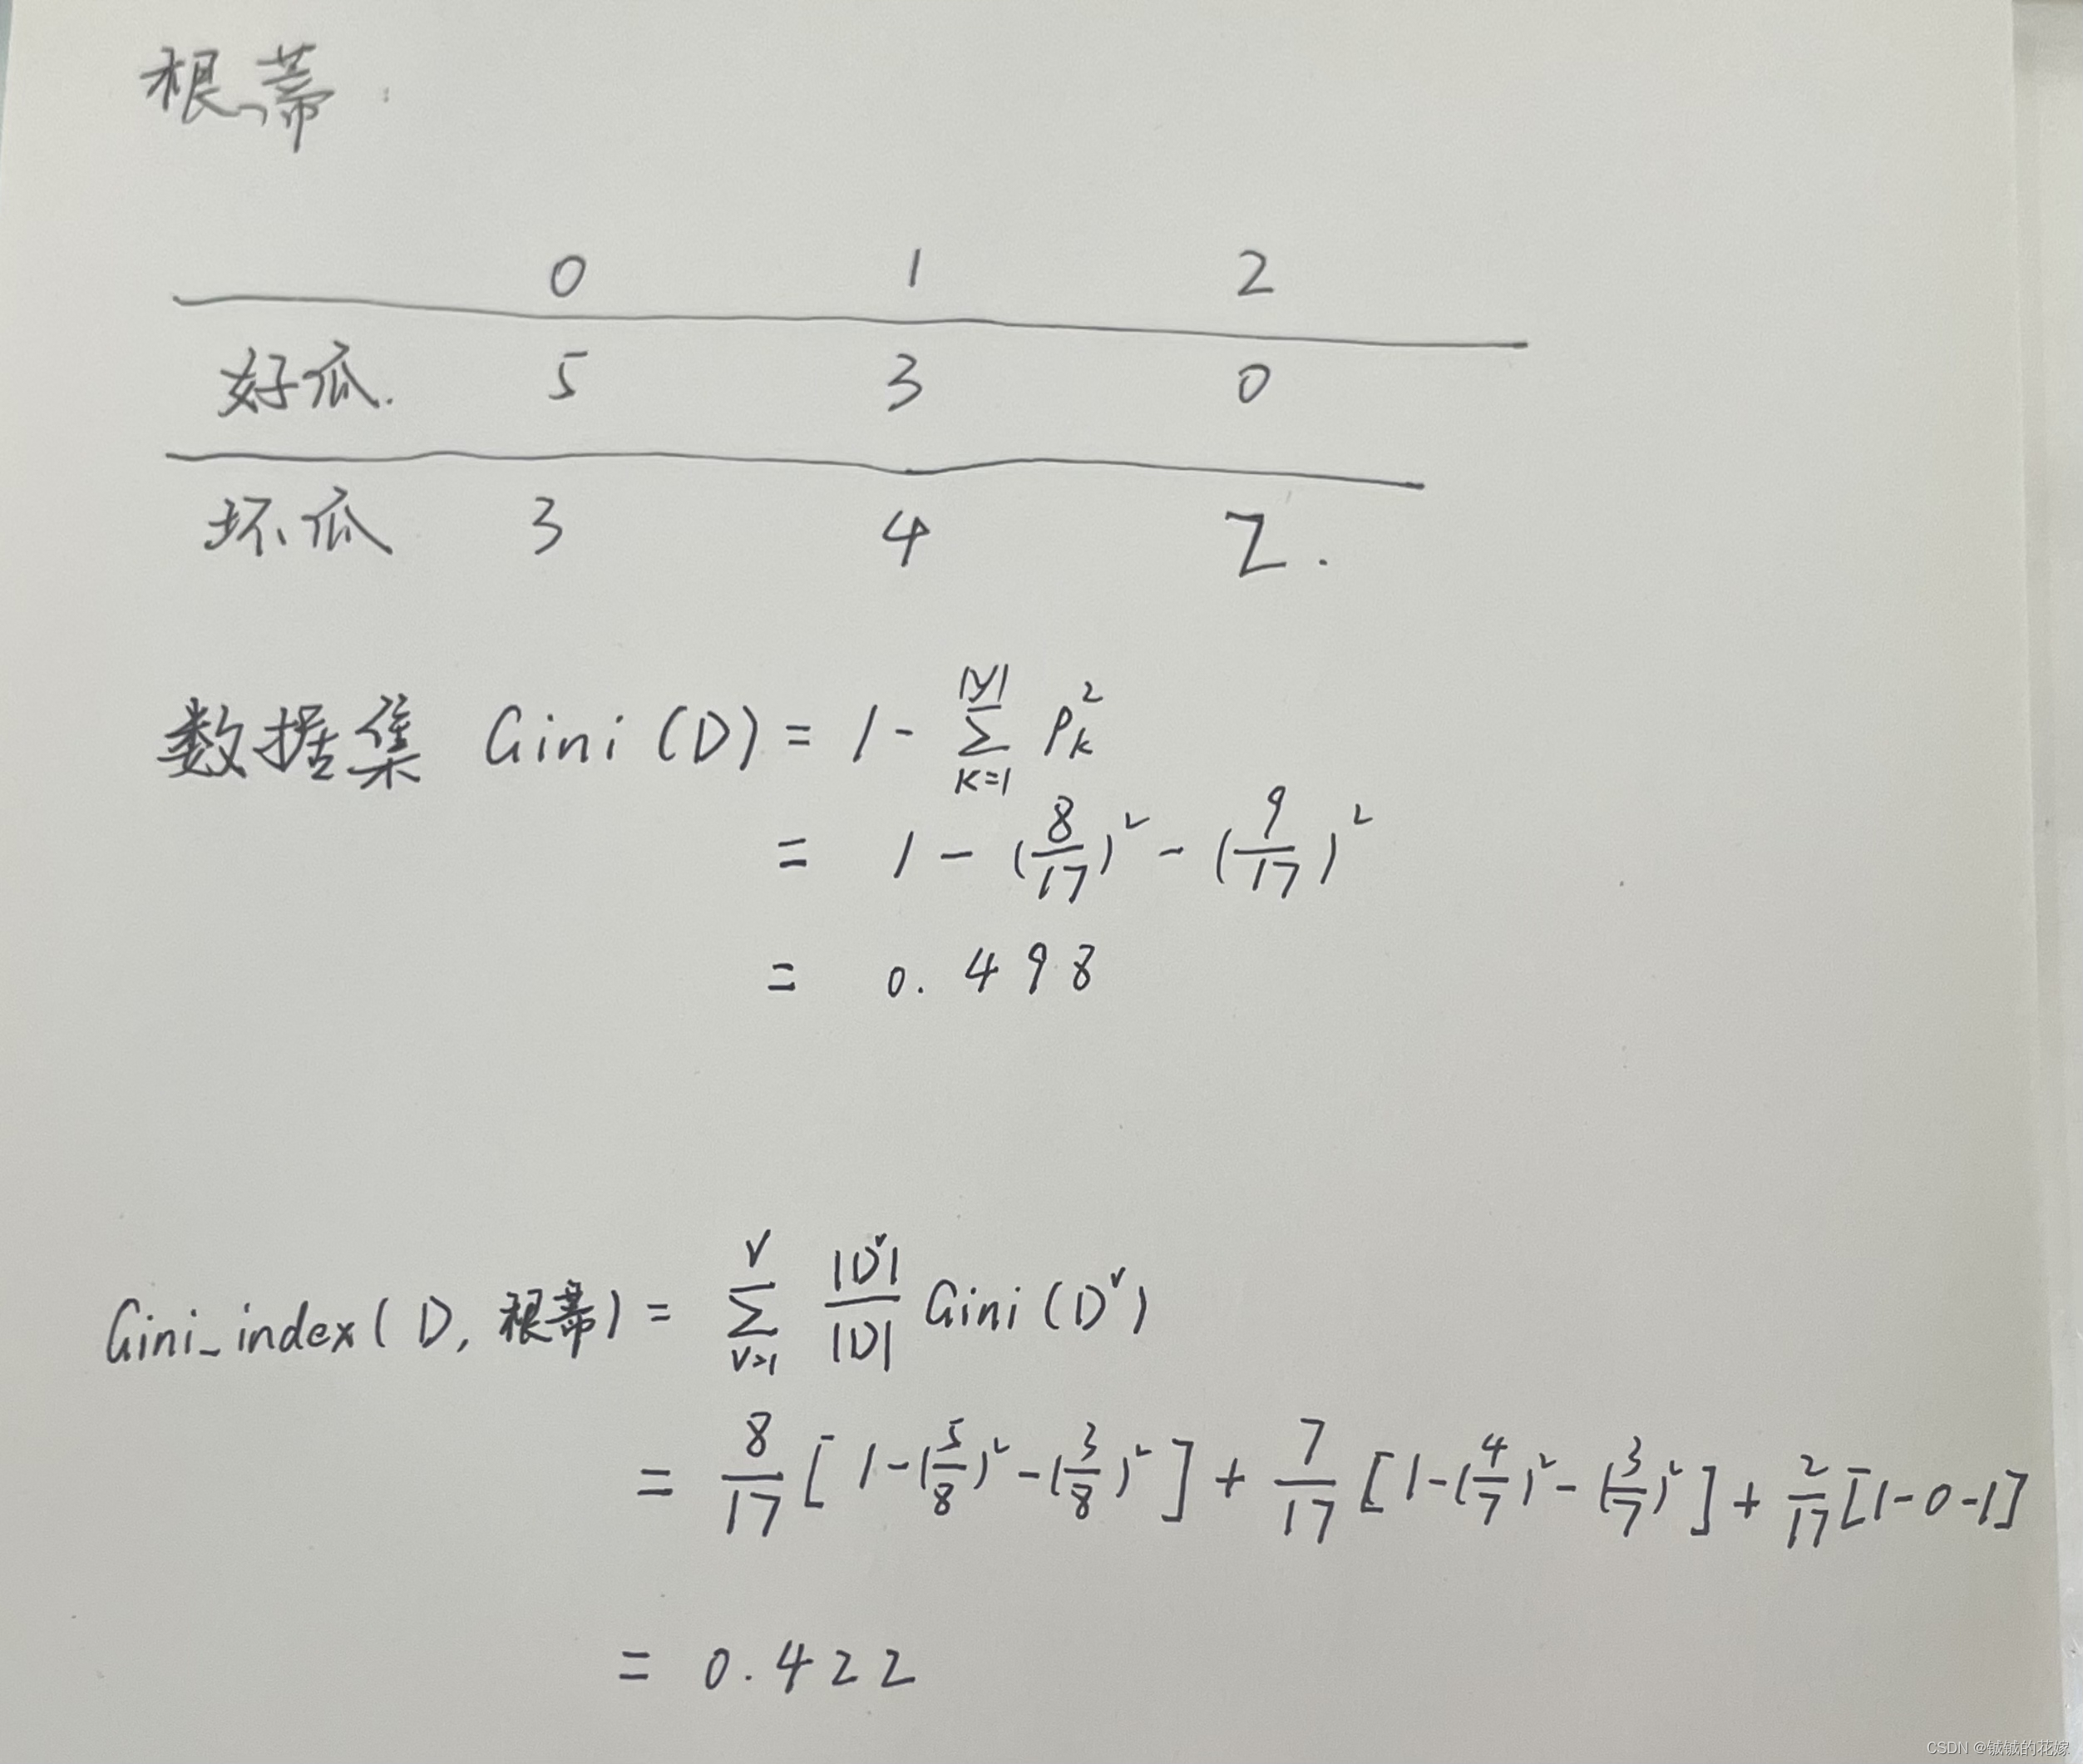 根蒂:
0 1 2
好瓜. 5 3 0
坏瓜 3 4 2.
数据集 Gini (D) = 1 - \sum_{k=1}^{|y|} p_k^2
= 1 - (8/17)^2 - (9/17)^2
= 0.498
Gini_index(D, 根蒂) = \sum_{v=1}^{V} |D^v|/|D| Gini(D^v)
= 8/17 [1-(5/8)^2-(3/8)^2] + 7/17 [1-(4/7)^2-(3/7)^2] + 2/17 [1-0-1]
= 0.422
CSDN @铖铖的花嫁